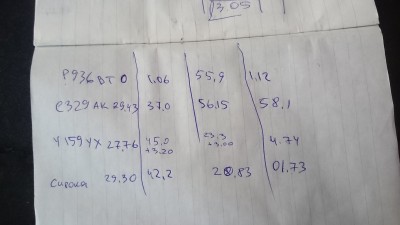 3.05
Р936ВТ 0 1,06 55,9 1,12
С329АК 29,43 37,0 56,15 58,1
У159УХ 27,76 45,0 +3,20 23,3 +3,00 4.74
Сирока 29.30 42,2 20,83 01,73